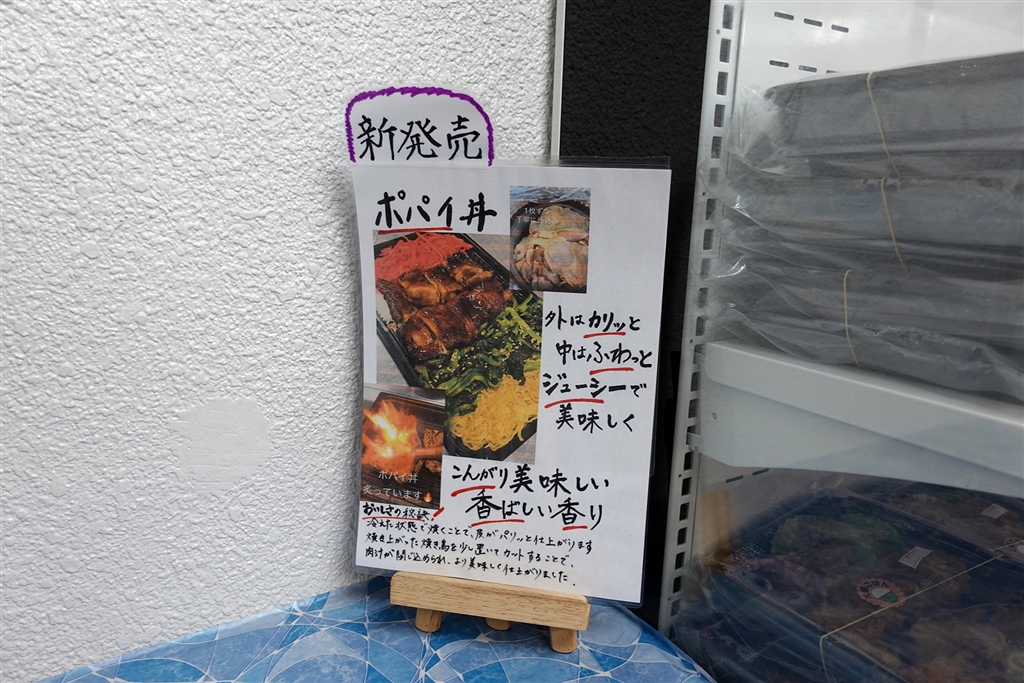 新発売
ポパイ丼
1枚ずつ
外はカリッと
中はふわっと
ジューシーで
美味しく
ポパイ丼
炙っています🔥
こんがり美味しい
香ばしい香り
おいしさの秘訣!
冷えた状態で焼くことで、皮がパリッと仕上がります
焼き上がった焼き鳥を少し置いてカットすることで、
肉汁が閉じ込められ、より美味しく仕上がりました。